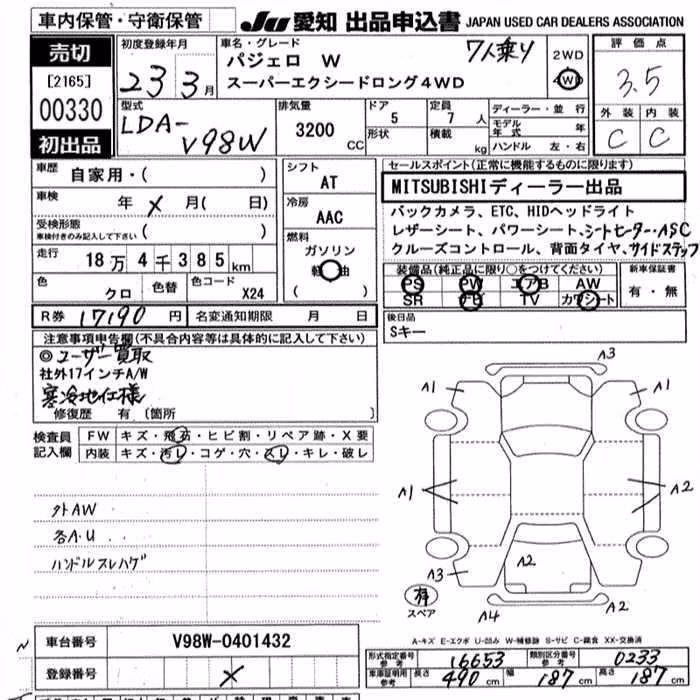 車内保管・守衛保管
JU 愛知 出品申込書 JAPAN USED CAR DEALERS ASSOCIATION
売切
[2165]
00330
初出品
初度登録年月
23 3月
車名・グレード
パジェロ W
7人乗り
スーパーエクシードロング4WD
2WD
4WD
評価点
3.5
外装 内装
C C
型式
LDA-
V98W
排気量
3200 CC
ドア
5
形状
定員
7 人
積載
kg
ディーラー・並行
モデル年式 年
ハンドル 左・右
車歴
自家用・( )
車検
年 × 月( 日)
受検形態
車検付きのみ記入して下さい ( )
走行
18万4千385km
色
クロ
色替
色コード
X24
シフト
AT
冷房
AAC
燃料
ガソリン
軽油
( )
セールスポイント(正常に機能するものに限ります)
MITSUBISHIディーラー出品
バックカメラ、ETC、HIDヘッドライト
レザーシート、パワーシート、シートヒーター・ASC
クルーズコントロール、背面タイヤ、サイドステップ
装備品(純正品に限り○をつけてください)
PS PW エアB AW
SR ナビ TV カワシート
新車保証書
有・無
R券 17190 円
名変通知期限 月 日
後日品
Sキー
注意事項申告欄(不具合内容等は具体的に記入して下さい)
◎ユーザー買取
社外17インチA/W
寒冷地仕様
修復歴 有 〔箇所 〕
検査員記入欄
FW キズ・飛石・ヒビ割・リペア跡・X要
内装 キズ・汚レ・コゲ・穴・スレ・キレ・破レ
外AW
各A・U
ハンドルスレハゲ
A3
A1 A1
A1 A2
A2
A3
A4 A2
有
スペア
A-キズ E-エクボ U-凹み W-補修跡 S-サビ C-腐食 XX-交換済
車台番号 V98W-0401432
登録番号 ×
形式指定番号 参考 16653
類別区分番号 参考 0233
車庫証明用 参考 長さ 490 cm 幅 187 cm 高さ 187 cm